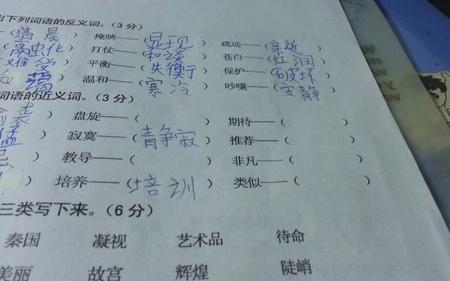 出下列词语的反义词。(3分)
掩映——(显现) 疏远——(亲近
打仗——(和谈) 苍白——(红润
平衡——(失衡) 保护——(破坏
温和——(寒冷) 吵嚷——(安静
词语的近义词。(3分)
盘旋——( ) 期待——(
寂寞——(青静寂) 推荐——(
教导——( ) 非凡——(
培养——(培训) 类似——(
三类写下来。(6分)
秦国 凝视 艺术品 待命
美丽 故宫 辉煌 陡峭